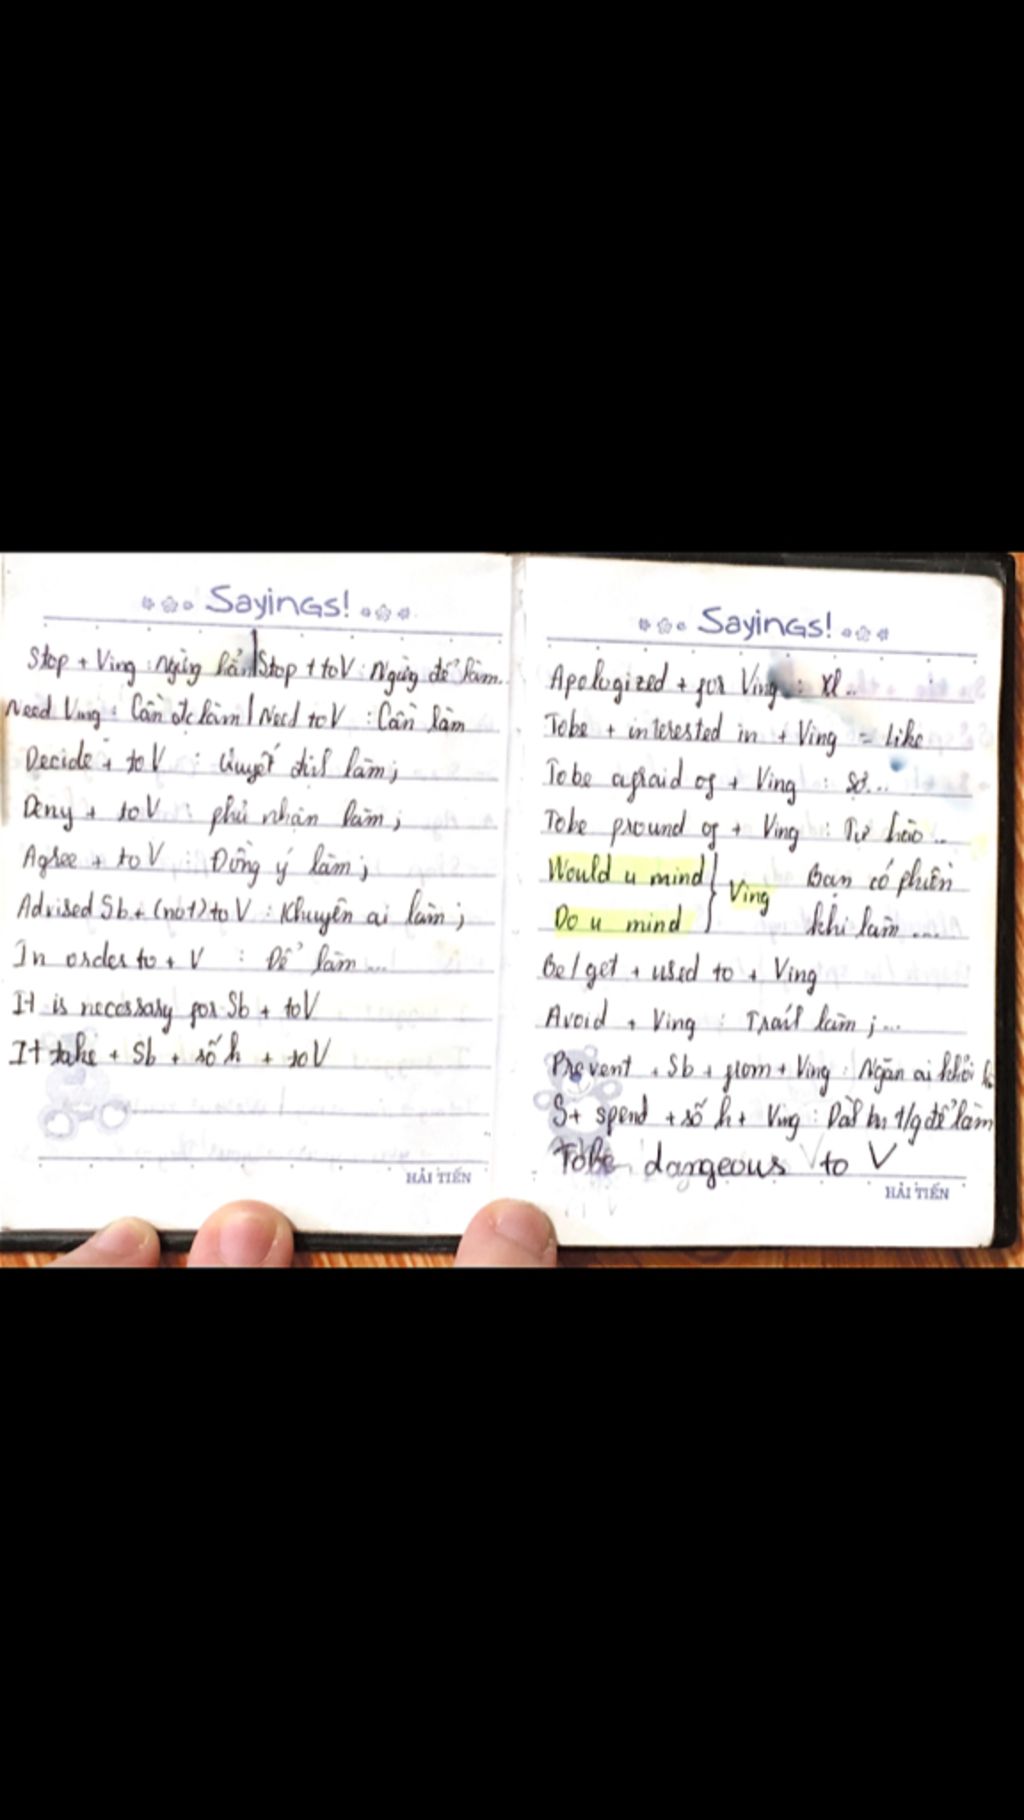 Sayings!
Stop + Ving : Ngừng hẳn | Stop + to V : Ngừng để làm...
Need Ving : Cần đc làm | Need to V : Cần làm
Decide + to V : Quyết định làm ;
Deny + to V : phủ nhận làm ;
Agree + to V : Đồng ý làm ;
Advised Sb + (not) to V : Khuyên ai làm ;
In order to + V : Để làm ...
It is necessary for Sb + to V
It take + Sb + số h + to V
HẢI TIẾN
Sayings!
Apologized + for Ving : Xl ..
Tobe + interested in + Ving = Like
To be afraid of + Ving : Sợ...
Tobe pround of + Ving : Tự hào ..
Would u mind } Ving Bạn có phiền
Do u mind khi làm ....
Be / get + used to + Ving
Avoid + Ving : Tránh làm ; ...
Prevent + Sb + from + Ving : Ngăn ai khỏi
S + spend + số h + Ving : Dành t/g để làm
Tobe dangeous to V
HẢI TIẾN